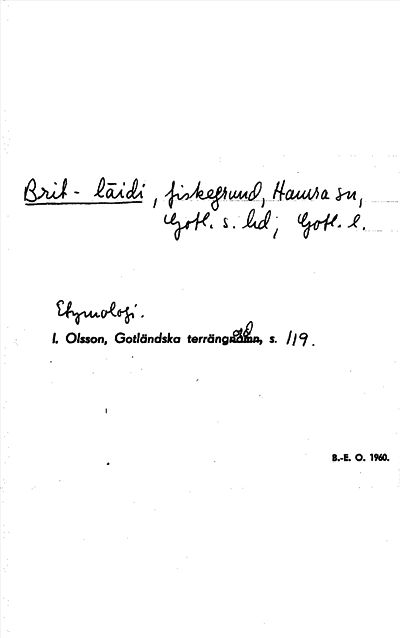 Brit-läidi, fiskegrund, Hamra sn,
Gotl. s. hd; Gotl. l.
Etymologi.
I. Olsson, Gotländska terräng, s. 119.
B.-E. O. 1960.